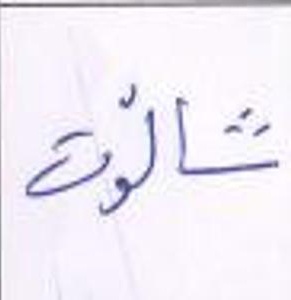 شالوت